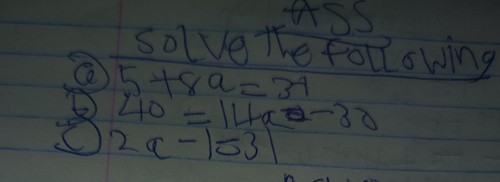 ASS
Solve The following
(a) 5+8a=39
(b) 40 = 14a - 30
(c) 2a-1=31